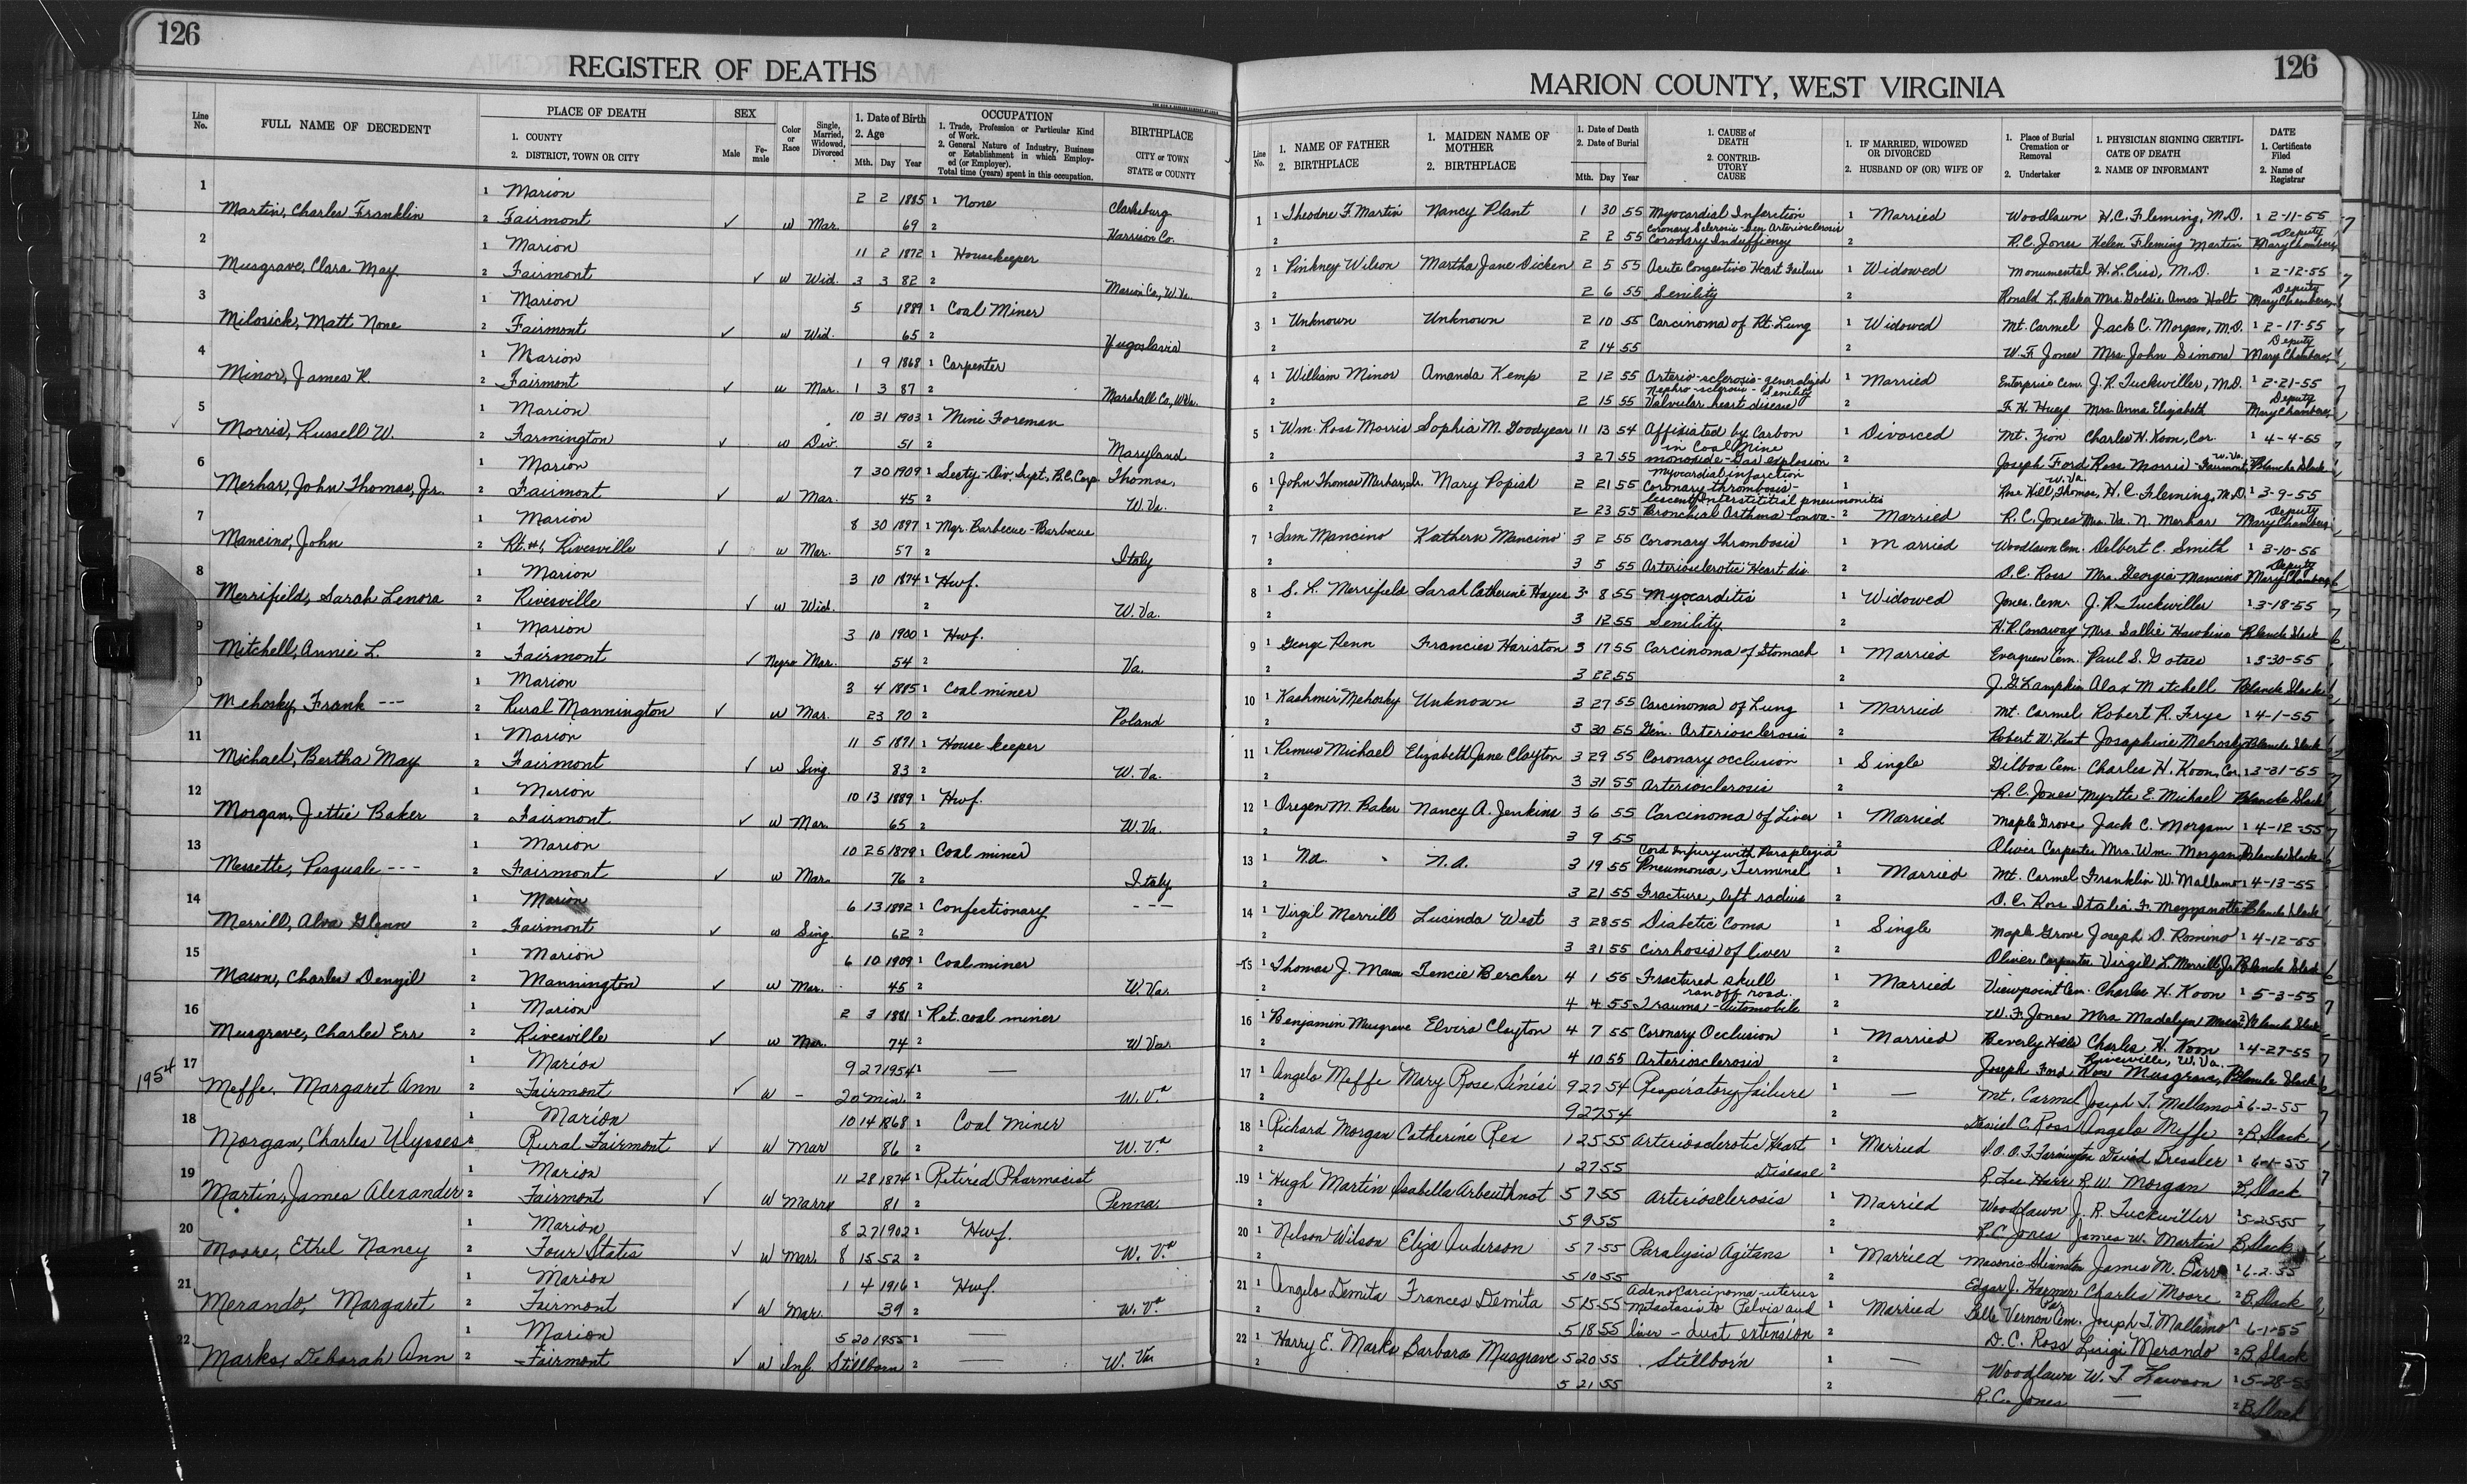 126
REGISTER OF DEATHS
Line No.
FULL NAME OF DECEDENT
PLACE OF DEATH
1. COUNTY
2. DISTRICT, TOWN OR CITY
SEX
Male
Female
Color or Race
Single, Married, Widowed, Divorced
1. Date of Birth
2. Age
Mth. Day Year
OCCUPATION
1. Trade, Profession or Particular Kind of Work.
2. General Nature of Industry, Business or Establishment in which Employed (or Employer).
Total time (years) spent in this occupation.
BIRTHPLACE
CITY or TOWN
STATE or COUNTY
1 1 Marion 2 2 1885 1 None Clarksburg
Martin, Charles Franklin 2 Fairmont ✓ w Mar. 69 2 Harrison Co.
2 1 Marion 11 2 1872 1 Housekeeper
Musgrave, Clara May 2 Fairmont ✓ w Wid. 3 3 82 2 Marion Co., W.Va.
3 1 Marion 5 1889 1 Coal Miner
Milosick, Matt None 2 Fairmont ✓ w Wid. 65 2 Yugoslavia
4 1 Marion 1 9 1868 1 Carpenter
Minor, James R. 2 Fairmont ✓ w Mar. 1 3 87 2 Marshall Co., W.Va.
5 1 Marion 10 31 1903 1 Mine Foreman
Morris, Russell W. 2 Farmington ✓ w Div. 51 2 Maryland
6 1 Marion 7 30 1909 1 Secty-Div. Supt., B.C. Corp. Thomas,
Merhar, John Thomas, Jr. 2 Fairmont ✓ w Mar. 45 2 W. Va.
7 1 Marion 8 30 1897 1 Mgr. Barbecue-Barbecue
Mancino, John 2 Rt. #1, Rivesville ✓ w Mar. 57 2 Italy
8 1 Marion 3 10 1874 1 Hwf.
Merrifield, Sarah Lenora 2 Rivesville ✓ w Wid. 2 W. Va.
9 1 Marion 3 10 1900 1 Hwf.
Mitchell, Annie L. 2 Fairmont ✓ Negro Mar. 54 2 Va.
0 1 Marion 3 4 1885 1 Coal miner
Mehosky, Frank --- 2 Rural Mannington ✓ w Mar. 23 70 2 Poland
11 1 Marion 11 5 1871 1 House keeper
Michael, Bertha May 2 Fairmont ✓ w Sing. 83 2 W. Va.
12 1 Marion 10 13 1889 1 Hwf.
Morgan, Jettie Baker 2 Fairmont ✓ w Mar. 65 2 W. Va.
13 1 Marion 10 25 1879 1 Coal miner
Messette, Pasquale --- 2 Fairmont ✓ w Mar. 76 2 Italy
14 1 Marion 6 13 1892 1 Confectionary ---
Merrill, Alva Glenn 2 Fairmont ✓ w Sing. 62 2
15 1 Marion 6 10 1909 1 Coal miner
Mason, Charles Denzil 2 Mannington ✓ w Mar. 45 2 W. Va.
16 1 Marion 2 3 1881 1 Ret. coal miner
Musgrave, Charles Err 2 Rivesville ✓ w Mar. 74 2 W Va.
17 1 Marion 9 27 1954 1 —
1954 Meffe, Margaret Ann 2 Fairmont ✓ w - 20 min. 2 W. Va
18 1 Marion 10 14 1868 1 Coal miner
Morgan, Charles Ulysses 2 Rural Fairmont ✓ w Mar 86 2 W. Va
19 1 Marion 11 28 1874 1 Retired Pharmacist
Martin, James Alexander 2 Fairmont ✓ w Marr. 81 2 Penna.
20 1 Marion 8 27 1902 1 Hwf.
Moore, Ethel Nancy 2 Four States ✓ w Mar. 8 15 52 2 W. Va
21 1 Marion 1 4 1916 1 Hwf.
Merando, Margaret 2 Fairmont ✓ w Mar. 39 2 W. Va
22 1 Marion 5 20 1955 1 —
Marks, Deborah Ann 2 Fairmont ✓ w Inf. Stillborn 2 — W. Va
126
MARION COUNTY, WEST VIRGINIA
Line No.
1. NAME OF FATHER
2. BIRTHPLACE
1. MAIDEN NAME OF MOTHER
2. BIRTHPLACE
1. Date of Death
2. Date of Burial
Mth. Day Year
1. CAUSE of DEATH
2. CONTRIBUTORY CAUSE
1. IF MARRIED, WIDOWED OR DIVORCED
2. HUSBAND OF (OR) WIFE OF
1. Place of Burial Cremation or Removal
2. Undertaker
1. PHYSICIAN SIGNING CERTIFICATE OF DEATH
2. NAME OF INFORMANT
DATE
1. Certificate Filed
2. Name of Registrar
1 1 Theodore F. Martin Nancy Plant 1 30 55 Myocardial Infarction 1 Married Woodlawn H.C. Fleming, M.D. 1 2-11-55
Coronary Sclerosis-Gen. Arteriosclerosis Deputy
2 2 2 55 Coronary Insuffiency 2 R.C. Jones Helen Fleming Martin Mary Chambers
2 1 Pinkney Wilson Martha Jane Dicken 2 5 55 Acute Congestive Heart Failure 1 Widowed Monumental H.L. Criss, M.D. 1 2-12-55
Deputy
2 2 6 55 Senility 2 Ronald L. Baker Mrs. Goldie Amos Holt Mary Chambers
3 1 Unknown Unknown 2 10 55 Carcinoma of Rt. Lung 1 Widowed Mt. Carmel Jack C. Morgan, M.D. 1 2-17-55
Deputy
2 2 14 55 2 W.F. Jones Mrs. John Simons Mary Chambers
4 1 William Minor Amanda Kemp 2 12 55 Arterio-sclerosis-generalized 1 Married Enterprise Cem. J.R. Tuckwiller, M.D. 1 2-21-55
Nephro-sclerosis-Senility Deputy
2 2 15 55 Valvular heart disease 2 F.H. Huey Mrs. Anna Elizabeth Mary Chambers
5 1 Wm. Ross Morris Sophia M. Goodyear 11 13 54 Affixiated by Carbon 1 Divorced Mt. Zion Charles H. Koon, Cor. 1 4-4-55
in Coal Mine W. Va.
2 3 27 55 monoxide-Gas explosion 2 Joseph Ford Ross Morris-Fairmont, Blanche Slack
Myocardial infarction W. Va.
6 1 John Thomas Merhar, Sr. Mary Popish 2 21 55 Coronary thrombosis- 1 Rose Hill, Thomas, H.C. Fleming, M.D. 1 3-9-55
lescent Interstitial pneumonitis Deputy
2 2 23 55 Bronchial Asthma Conva- 2 Married R.C. Jones Mrs. Va. N. Merhar Mary Chambers
7 1 Sam Mancino Kathern Mancino 3 2 55 Coronary Thrombosis 1 Married Woodlawn Cem. Delbert C. Smith 1 3-10-55
Deputy
2 3 5 55 Arteriosclerotic Heart dis. 2 D.C. Ross Mrs. Georgia Mancino Mary Chambers
8 1 S. L. Merrifield Sarah Catherine Hayes 3 8 55 Myocarditis 1 Widowed Jones Cem. J.R. Tuckwiller 1 3-18-55
2 3 12 55 Senility 2 H.R. Conaway Mrs. Sallie Hawkins Blanche Slack
9 1 George Penn Francies Hariston 3 17 55 Carcinoma of Stomach 1 Married Evergreen Cem. Paul S. Gotses 1 3-30-55
2 3 22 55 2 J.G. Lampkin Alax Mitchell Blanche Slack
10 1 Kashmir Mehosky Unknown 3 27 55 Carcinoma of Lung 1 Married Mt. Carmel Robert R. Frye 1 4-1-55
2 3 30 55 Gen. Arteriosclerosis 2 Robert W. Kent Josephine Mehosky Blanche Slack
11 1 Remus Michael Elizabeth Jane Clayton 3 29 55 Coronary occlusion 1 Single Gilboa Cem. Charles H. Koon, Cor. 1 3-31-55
2 3 31 55 Arteriosclerosis 2 R.C. Jones Myrtle E. Michael Blanche Slack
12 1 Oregen M. Baker Nancy A. Jenkins 3 6 55 Carcinoma of Liver 1 Married Maple Grove Jack C. Morgan 1 4-12-55
2 3 9 55 2 Oliver Carpenter Mrs. Wm. Morgan Blanche Slack
Cord Injury with Paraplegia
13 1 n.a. n.a. 3 19 55 Pneumonia, Terminal 1 Married Mt. Carmel Franklin W. Mallamo 1 4-13-55
2 3 21 55 Fracture, left radius 2 D.C. Ross Italia F. Mezzanotte Blanche Slack
14 1 Virgil Merrill Lucinda West 3 28 55 Diabetic Coma 1 Single Maple Grove Joseph D. Romino 1 4-12-55
2 3 31 55 Cirrhosis of liver 2 Oliver Carpenter Virgil L. Merrill, Jr. Blanche Slack
15 1 Thomas J. Mason Tencie Bercher 4 1 55 Fractured skull 1 Married Viewpoint Cem. Charles H. Koon 1 5-3-55
ran off road.
2 4 4 55 Trauma-Automobile 2 W.F. Jones Mrs. Madelyn Mason 2 Blanche Slack
16 1 Benjamin Musgrave Elvira Clayton 4 7 55 Coronary Occlusion 1 Married Beverly Hills Charles H. Koon 1 4-27-55
Rivesville, W. Va.
2 4 10 55 Arteriosclerosis 2 Joseph Ford Musgrave, Blanche Slack
17 1 Angelo Meffe Mary Rose Sinisi 9 27 54 Respiratory failure 1 — Mt. Carmel Joseph T. Mallamo 1 6-2-55
2 9 27 54 2 Daniel C. Ross Angelo Meffe 2 B. Slack
18 1 Richard Morgan Catherine Rex 1 25 55 Arteriosclerotic Heart 1 Married I.O.O.F. Farmington David Bressler 1 6-1-55
2 1 27 55 Disease 2 R. Lee Harr R.W. Morgan B. Slack
19 1 Hugh Martin Isabella Arbuthnot 5 7 55 Arteriosclerosis 1 Married Woodlawn J.R. Tuckwiller 1 5-25-55
2 5 9 55 2 R.C. Jones James W. Martin B. Slack
20 1 Nelson Wilson Eliza Anderson 5 7 55 Paralysis Agitans 1 Married Masonic James M. Barr 1 6-2-55
2 5 10 55 2 Edgar J. Harmer Charles Moore 2 B. Slack
Adenocarcinoma-uterus Pa.
21 1 Angelo Demita Frances Demita 5 15 55 metastasis to Pelvis and 1 Married Belle Vernon Cem. Joseph T. Mallamo 6-1-55
2 5 18 55 liver - duct extension 2 D.C. Ross Luigi Merando 2 B. Slack
22 1 Harry E. Marks Barbara Musgrave 5 20 55 Stillborn 1 — Woodlawn W. T. Lawson 1 5-28-55
2 5 21 55 2 R.C. Jones — 2 B. Slack